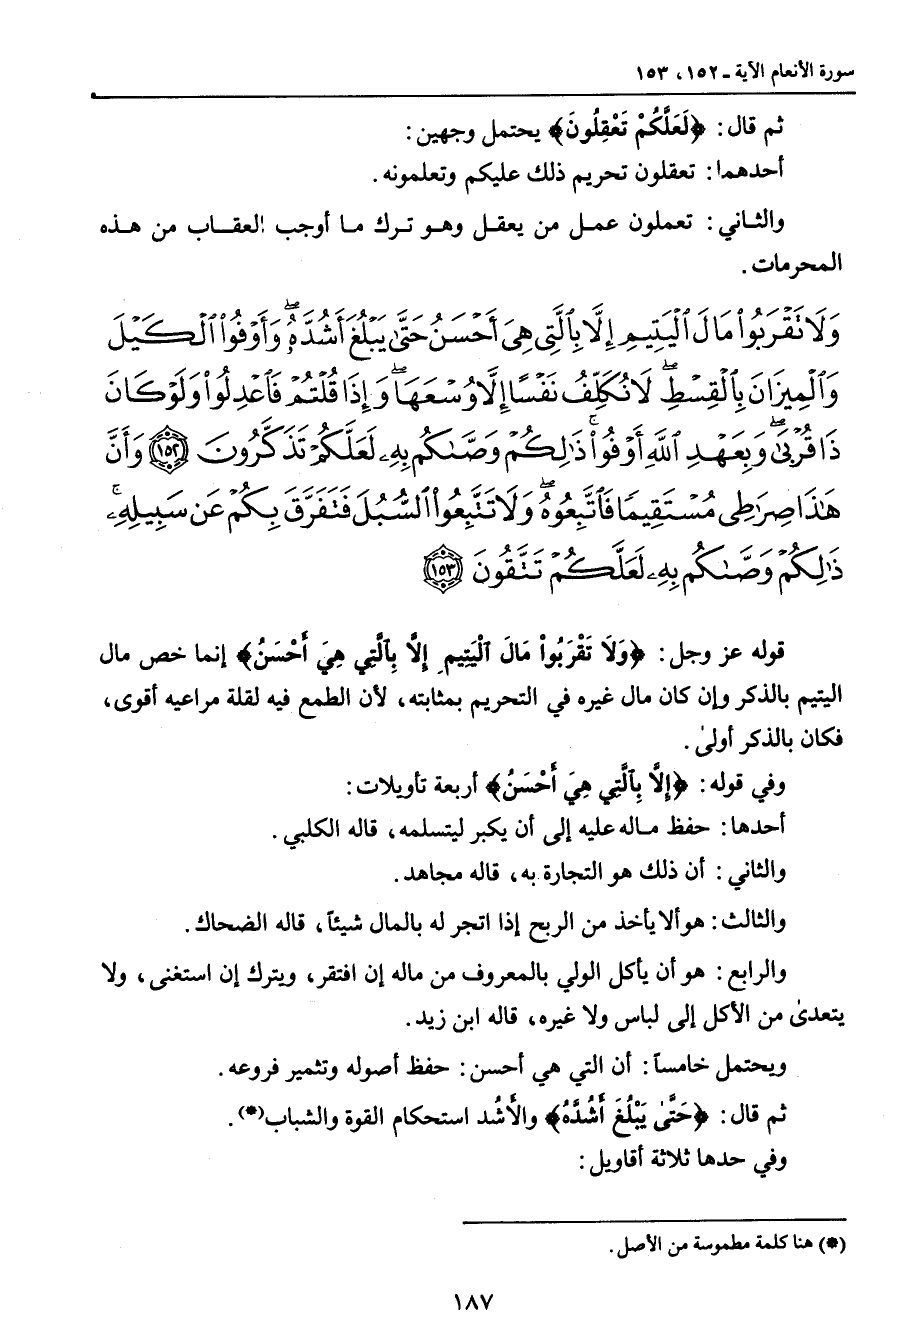 سورة الأنعام الآية ـ ١٥٢، ١٥٣
ثم قال: ﴿لَعَلَّكُمْ تَعْقِلُونَ﴾ يحتمل وجهين:
أحدهما: تعقلون تحريم ذلك عليكم وتعلمونه.
والثاني: تعملون عمل من يعقل وهو ترك ما أوجب العقاب من هذه
المحرمات.
وَلَا تَقْرَبُوا۟ مَالَ ٱلْيَتِيمِ إِلَّا بِٱلَّتِى هِىَ أَحْسَنُ حَتَّىٰ يَبْلُغَ أَشُدَّهُۥ ۖ وَأَوْفُوا۟ ٱلْكَيْلَ
وَٱلْمِيزَانَ بِٱلْقِسْطِ ۖ لَا نُكَلِّفُ نَفْسًا إِلَّا وُسْعَهَا ۖ وَإِذَا قُلْتُمْ فَٱعْدِلُوا۟ وَلَوْ كَانَ
ذَا قُرْبَىٰ ۖ وَبِعَهْدِ ٱللَّهِ أَوْفُوا۟ ۚ ذَٰلِكُمْ وَصَّىٰكُم بِهِۦ لَعَلَّكُمْ تَذَكَّرُونَ ١٥٢ وَأَنَّ
هَٰذَا صِرَٰطِى مُسْتَقِيمًا فَٱتَّبِعُوهُ ۖ وَلَا تَتَّبِعُوا۟ ٱلسُّبُلَ فَتَفَرَّقَ بِكُمْ عَن سَبِيلِهِۦ ۚ
ذَٰلِكُمْ وَصَّىٰكُم بِهِۦ لَعَلَّكُمْ تَتَّقُونَ ١٥٣
قوله عز وجل: ﴿وَلَا تَقْرَبُواْ مَالَ ٱلْيَتِيمِ إِلَّا بِٱلَّتِي هِيَ أَحْسَنُ﴾ إنما خص مال
اليتيم بالذكر وإن كان مال غيره في التحريم بمثابته، لأن الطمع فيه لقلة مراعيه أقوى،
فكان بالذكر أولىٰ.
وفي قوله: ﴿إِلَّا بِٱلَّتِي هِيَ أَحْسَنُ﴾ أربعة تأويلات:
أحدها: حفظ ماله عليه إلى أن يكبر ليتسلمه، قاله الكلبي.
والثاني: أن ذلك هو التجارة به، قاله مجاهد.
والثالث: هو ألا يأخذ من الربح إذا اتجر له بالمال شيئاً، قاله الضحاك.
والرابع: هو أن يأكل الولي بالمعروف من ماله إن افتقر، ويترك إن استغنى، ولا
يتعدىٰ من الأكل إلى لباس ولا غيره، قاله ابن زيد.
ويحتمل خامساً: أن التي هي أحسن: حفظ أصوله وتثمير فروعه.
ثم قال: ﴿حَتَّىٰ يَبْلُغَ أَشُدَّهُ﴾ والأَشُد استحكام القوة والشباب(*).
وفي حدها ثلاثة أقاويل:
(*) هنا كلمة مطموسة من الأصل.
١٨٧